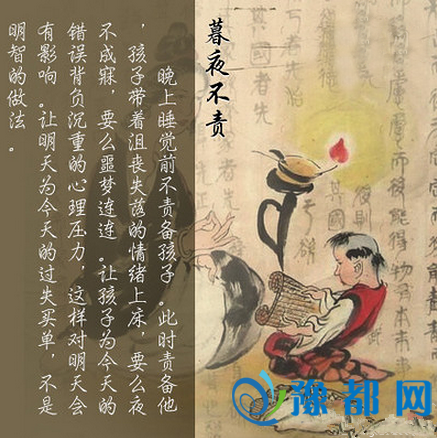 暮夜不责
晚上睡觉前不责备孩子。此时责备他
，孩子带着沮丧失落的情绪上床，要么夜
不成寐，要么噩梦连连。让孩子为今天的
错误背负沉重的心理压力，这样对明天会
有影响。让明天为今天的过失买单，不是
明智的做法。
其國者先
豫都网